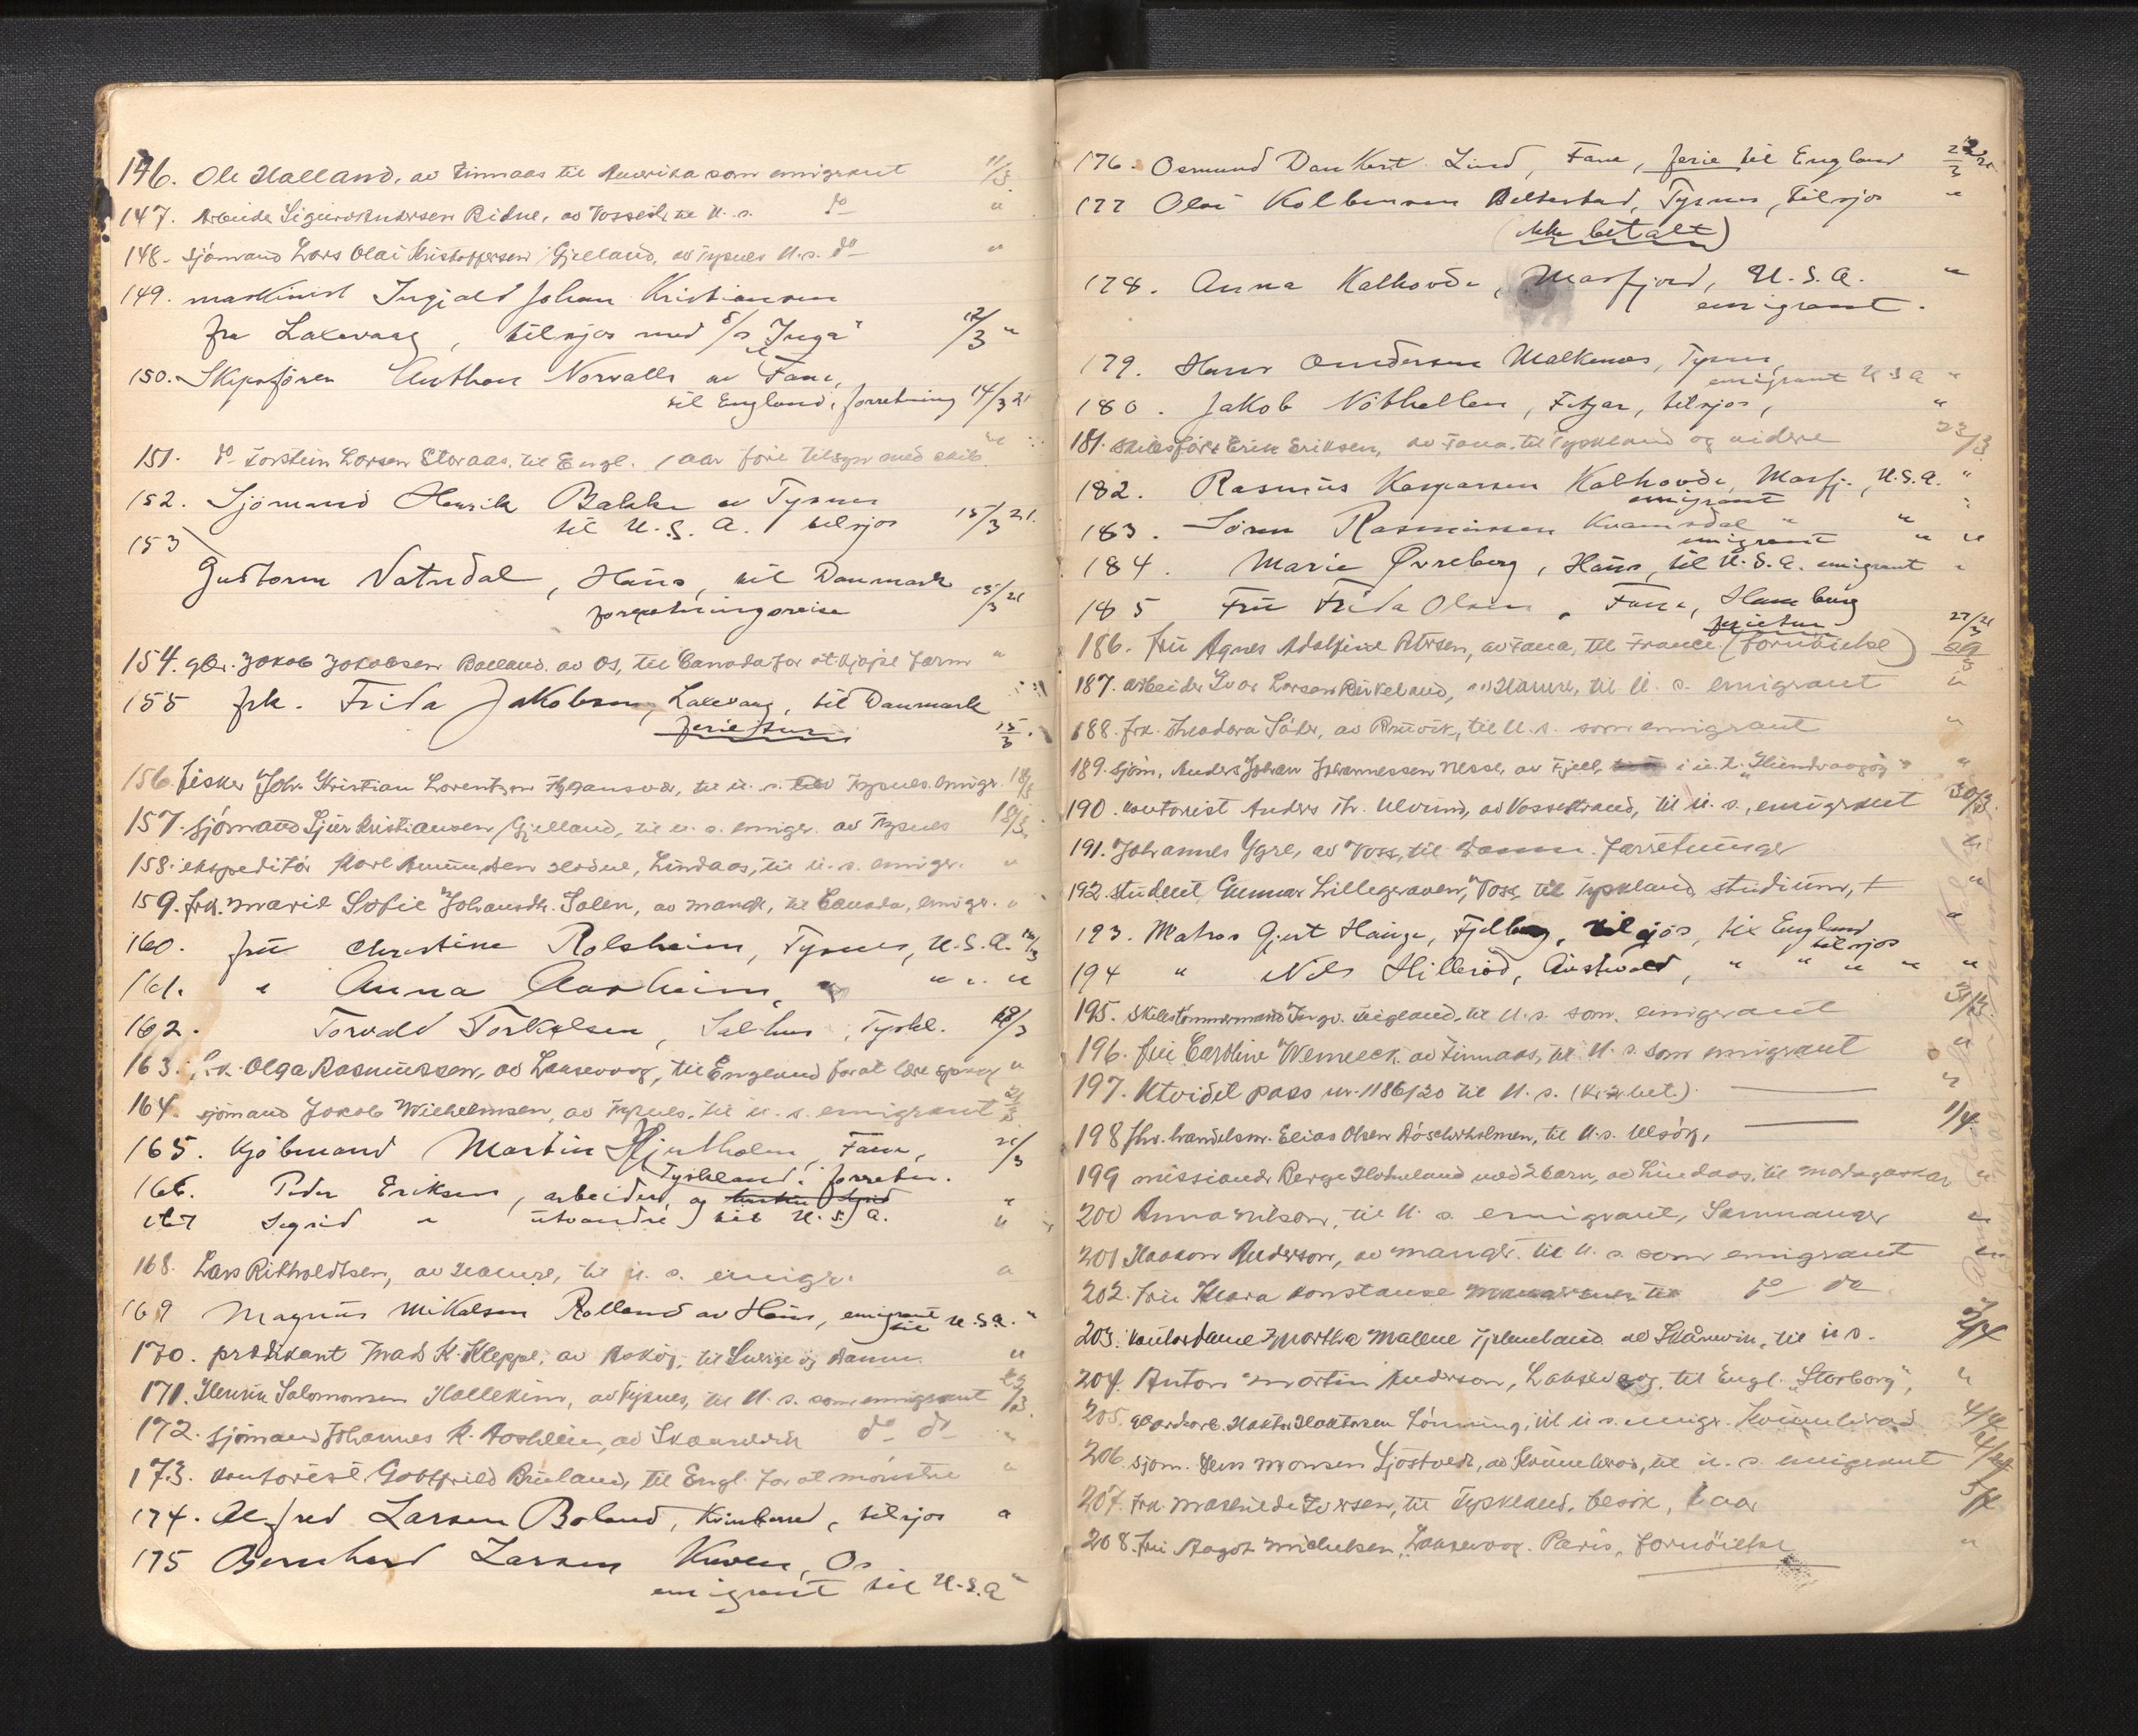 146. Ole Halland, av Finnaas til Amerika som emigrant 11/3
147. Arbeider Sigurd Andersen Bidne, av Vossestr. til U.s. do "
148. Sjömand Lars Olai Kristoffersen Gjelland, av Tysnes U.s. do "
149. maskinist Ingjald Johan Kristiansen
fra Laxevaag, tilsjøs med S/s "Inga" 12/3 "
150. Skipsfører Anthon Norvalls av Fane,
til England, forretning 14/3 21
151. do Torstein Larsen Storaas, til Engl. 1 aar före tilsyn med skib
152. Sjömand Henrik Bakke av Tysnes
til U.S.A. tilsjøs 15/3 21.
153
Gudtorm Natndal, Haus, til Danmark
forretningsreise 15/3 21
154. gbr. Jakob Jakobsen Bolland. av Os, til Canada for at kjøpe farm "
155 frk. Frida Jakobsen, Laxevaag, til Danmark
ferietur 15/3.
156. fisker Joh. Kristian Lorentzen, til u.s. Tysnes. emigr. 18/3
157. sjömand Sjur Kristiansen Gjelland, til u.s. emigr. av Tysnes 18/3
158. ekspeditör Karl Amundsen, Lindaas, til u.s. emigr. "
159. frk. Marie Sofie Johansdtr. Solen, av Mangr, til Canada, emigr. "
160. frü Christine Rolsheim, Tysnes, U.S.A. 18/3
161. " Anna Aarheim, " " " "
162. Torvald Torkelsen, Salhus, Tyskl. 19/3
163. frk. Olga Rasmussen, av Laksevaag, til England for at lære sprog "
164. sjömand Jakob Wilhelmsen, av Tysnes, til u.s. emigrant 21/3
165. Kjöbmand Martin Hjertholm, Fane, 21/3
Tyskland. forretn.
166. Peder Eriksen, arbeider, og "
167 Sigrid " utvandre) til U.S.A. "
168. Lars Rikholdtsen, av Hamre, til u.s. emigr. "
169 Magnus Mikalsen Rolland av Haus, emigrant til U.S.A. "
170. prædikant Mads K. Kleppe, av Askøy, til Sverige og Danm. "
171. Henrik Salomonsen Hallekim, av Tysnes, til U.s. som emigrant 22/3
172. sjömand Johannes K. Aasheim, av Skaanevik do do "
173. kontorist Gottfried Bruland, til Engl. for at mönstre "
174. Alfred Larsen Boland, Kvinherred, tilsjøs "
175 Bernhard Larsen Kuven, Os
emigrant til U.S.A "
176. Osmund Dankert Lind, Fane, ferie til England 22/3 21
177 Olai Kolbensen Beltestad, Tysnes, tilsjøs "
(ikke betalt)
178. Anna Kalhovde, Masfjord, U.S.A. "
emigrant.
179. Hans Andersen Malkenes, Tysnes,
emigrant U S A "
180. Jakob Nöthellen, Fitjar, tilsjøs, "
181. Skibsförer Erik Eriksen, av Fana, til Tyskland og videre 23/3
182. Rasmus Kasparsen Kalhovde, Masfj., U.S.A. "
emigrant
183. Sören Rasmussen Kvamsdal " " "
emigrant
184. Marie Øvreberg, Haus, til U.S.A. emigrant "
185 Frü Frida Olsen, Fane, Hamburg
ferietur 27/3 21
186. frü Agnes Adolfine Petersen, av Fana, til France. (fornöielse) 29/3
187. arbeider Ivar Larsen Birkeland, av Hamre, til U.s. emigrant "
188. frk. Theodora Sæter, av Bruvik, til U.s. som emigrant "
189. sjöm. Anders Johan Johannessen Nesse, av Fjell, "
190. kontorist Anders Th. Ulvund, av Vossestrand, til U.s., emigrant 30/3
191. Johannes Ygre, av Voss, til Danm. forretninger "
192. student Gunnar Lillegraven, Voss, til Tyskland, studium, "
193. Matros Gjert Hauge, Fjelberg, tilsjøs, til England "
tilsjøs
194 " Nils Hillesöd, Austevold, " " " " "
195. Skibstömmermand Ingv. Eigeland, til U.s. som emigrant 31/3
196. frü Caroline Werneeck, av Finnaas, til U.s. som emigrant "
197. Utvidet pass nr. 1186/20 til U.s. (Kr 2 bet.) "
198 fhv. handelsm. Elias Olsen Röscherholmen, til U.s. 1/4
199 missionær Berge Hodneland med 2 barn, av Lindaas, til Madagaskar "
200 Anna Nilsson, til U.s. emigrant, Samnanger "
201 Haakon Anderson, av Manger, til U.s. som emigrant "
202. frü Klara Konstanse til do do
203. kontordame Martha Malene Tjelmeland av Skånevik, til u s. 2/4
204. Anton Martin Anderson, Laksevaag, til Engl. "Storborg", "
205. gaardarb. Haktor Haktorsen Lönning, til u s. emigr. Kvinnherad 4/4
206. sjöm. Hans Monsen Sjöstvedt, av Kvinnherad, til u.s. emigrant 4/4
207. frk. Mathilde Iversen, til Tyskland, besök, 1 aar 5/4
208. frü Aagot Michelsen, Laksevaag. Paris, fornöielse "